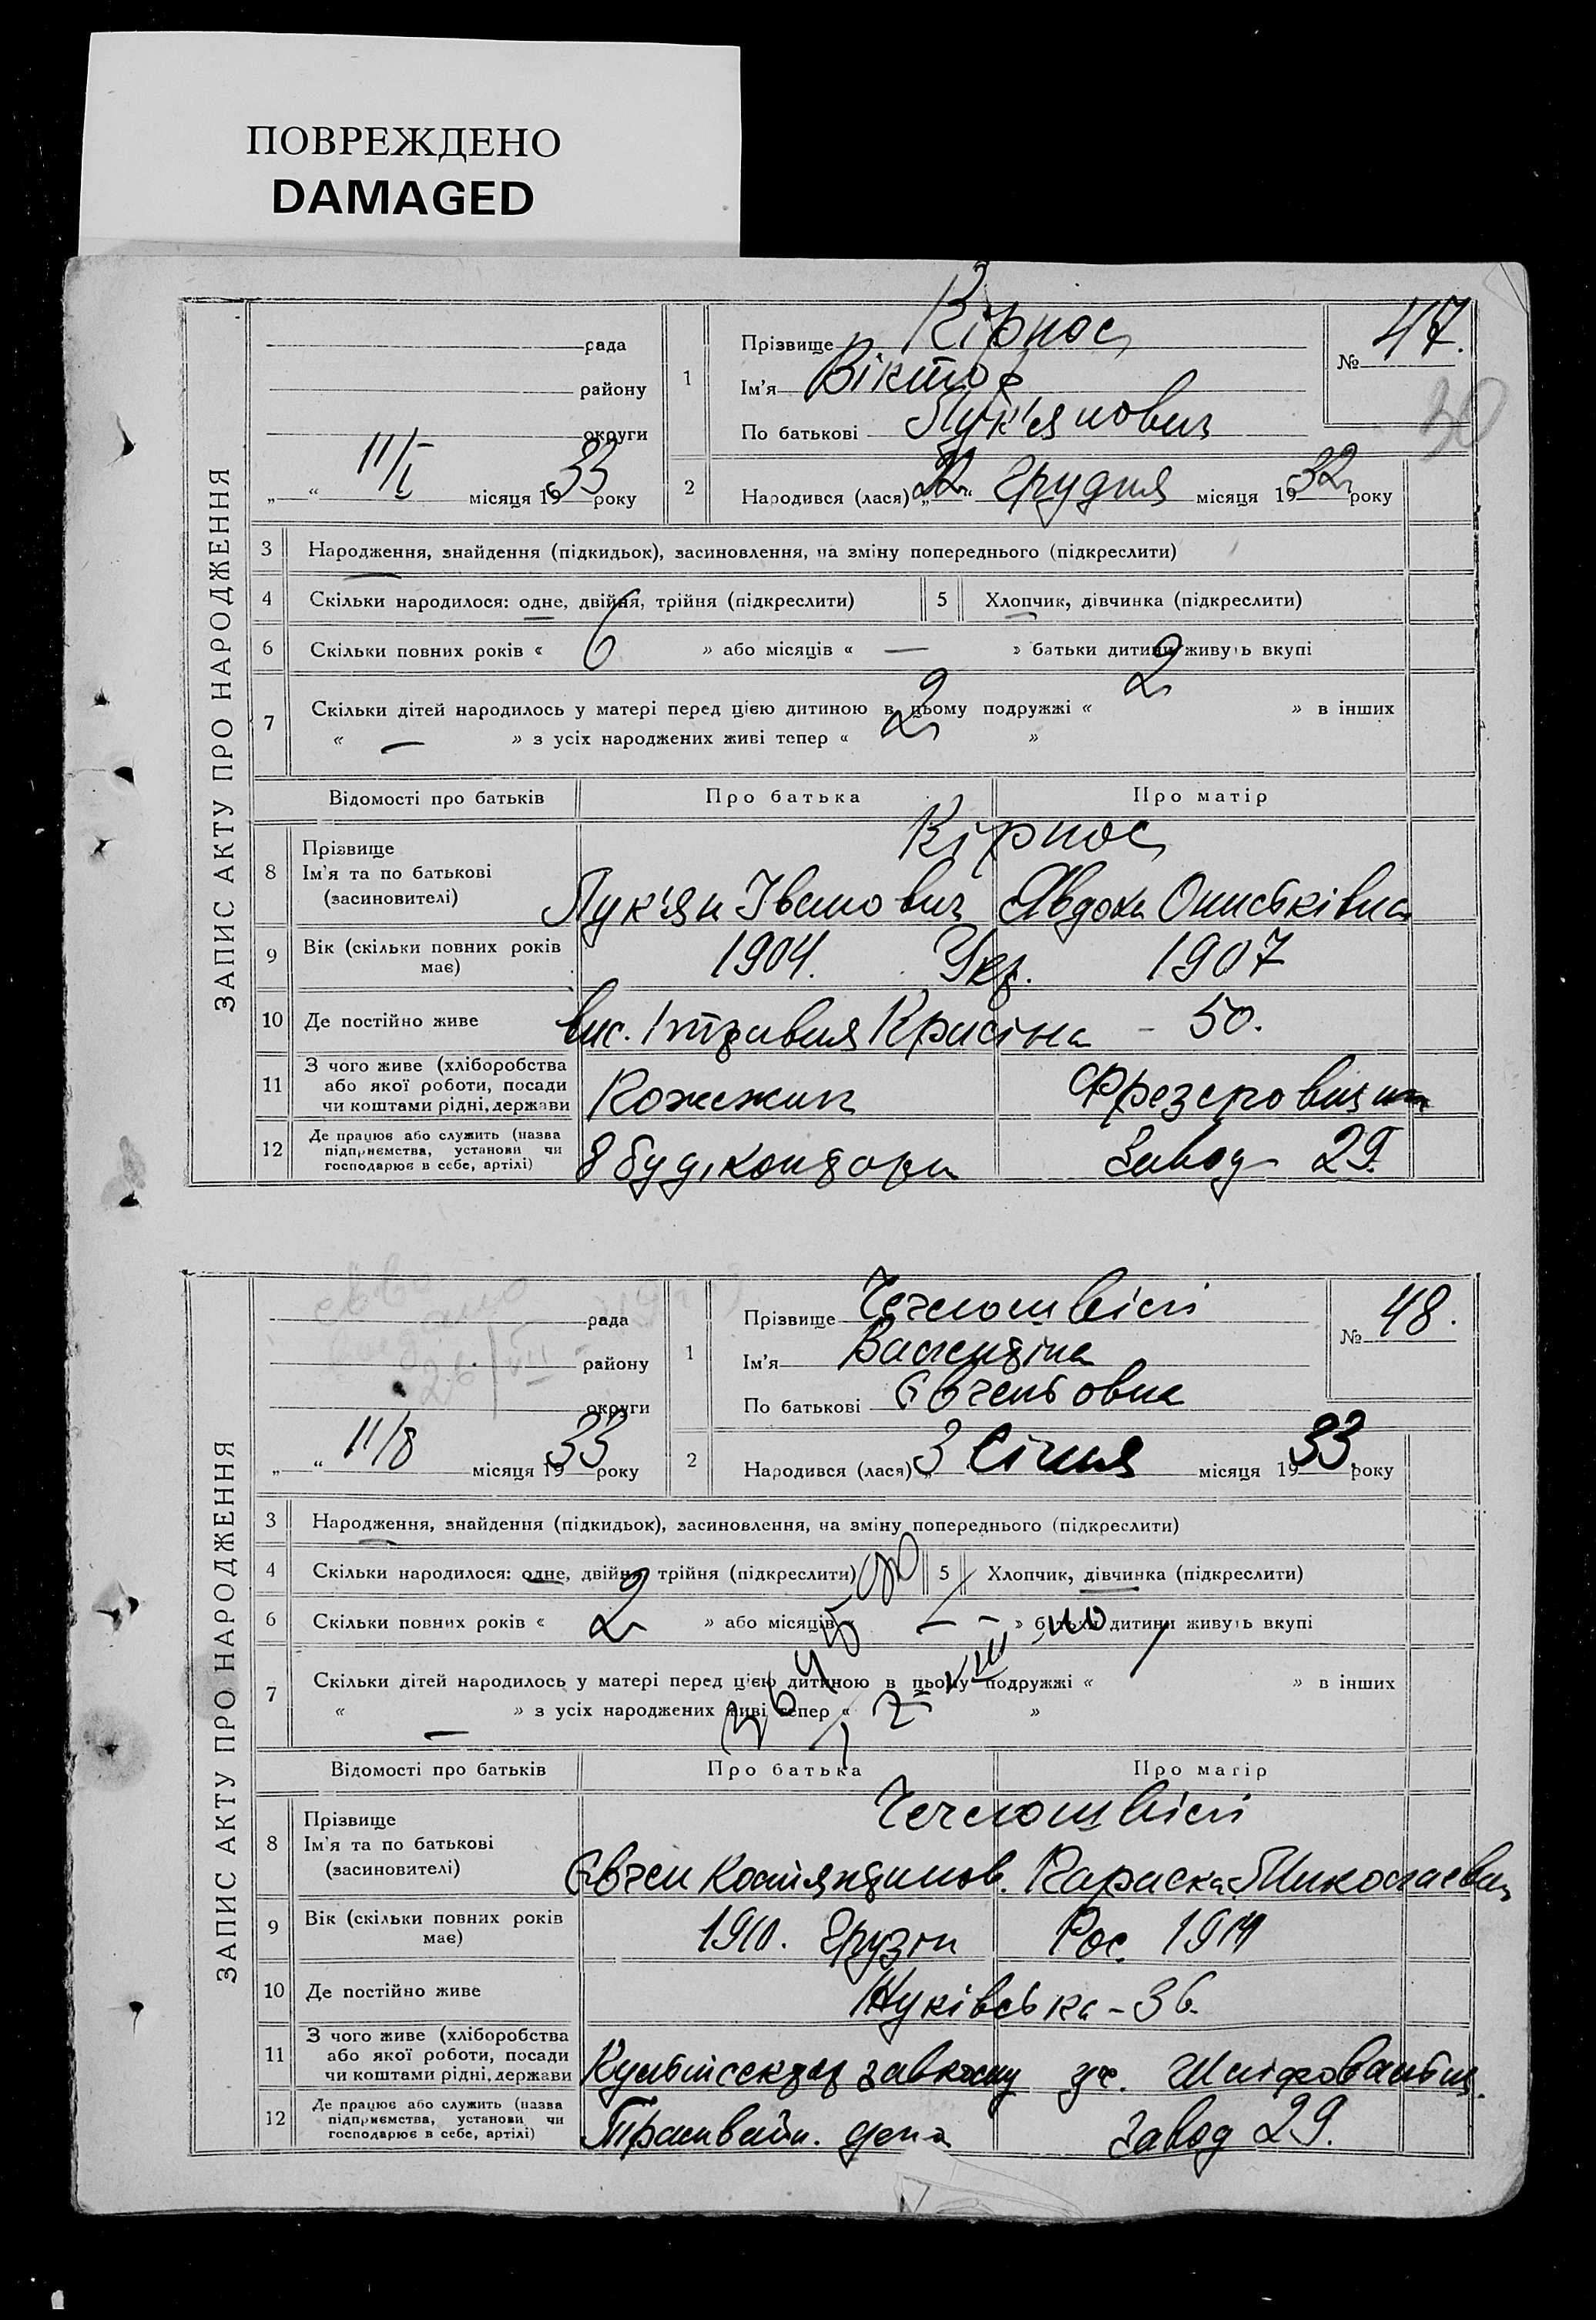 ПОВРЕЖДЕНО
DAMAGED
ЗАПИС АКТУ ПРО НАРОДЖЕННЯ
рада
району
округи
„ “ 11/I місяця 1933 року
1
Прізвище Кірнос
Ім'я Віктор
По батькові Лук'янович
№ 47.
30
2
Народився (лася) „22“ Грудня місяця 1932 року
3 Народження, знайдення (підкидьок), засиновлення, на зміну попереднього (підкреслити)
4 Скільки народилося: одне, двійня, трійня (підкреслити) 5 Хлопчик, дівчинка (підкреслити)
6 Скільки повних років « 6 » або місяців « — » батьки дитини живуть вкупі
7 Скільки дітей народилось у матері перед цією дитиною в цьому подружжі « 2 » в інших
« — » з усіх народжених живі тепер « 2 »
Відомості про батьків Про батька Про матір
8 Прізвище Кірнос
Ім'я та по батькові (засиновителі) Лук'ян Іванович Явдоха
9 Вік (скільки повних років має) 1904. Укр. 1907
10 Де постійно живе вис. 1 травня Красіна - 50.
11 З чого живе (хліборобства або якої роботи, посади чи коштами рідні, держави Фрезеровщик
12 Де працює або служить (назва підприємства, установи чи господарює в себе, артілі) 8 буд. контора Завод 29.
ЗАПИС АКТУ ПРО НАРОДЖЕННЯ
рада
району
округи
„ “ 11/8 місяця 1933 року
26/VII
1
Прізвище
Ім'я Валентіна
По батькові Євгеньовна
№ 48.
2
Народився (лася) „ 3 Січня місяця 1933 року
3 Народження, знайдення (підкидьок), засиновлення, на зміну попереднього (підкреслити)
4 Скільки народилося: одне, двійня, трійня (підкреслити) 5 Хлопчик, дівчинка (підкреслити)
6 Скільки повних років « 2 » або місяців « — » батьки дитини живуть вкупі
7 Скільки дітей народилось у матері перед цією дитиною в цьому подружжі « » в інших
« — » з усіх народжених живі тепер « »
Відомості про батьків Про батька Про матір
8 Прізвище
Ім'я та по батькові (засиновителі) Євген Костянтинов. Миколаевн
9 Вік (скільки повних років має) 1910. Грузін Рос. 1914
10 Де постійно живе Жуківська - 36.
11 З чого живе (хліборобства або якої роботи, посади чи коштами рідні, держави Культсектор завкому
12 Де працює або служить (назва підприємства, установи чи господарює в себе, артілі) Трамвайн. депо Завод 29.